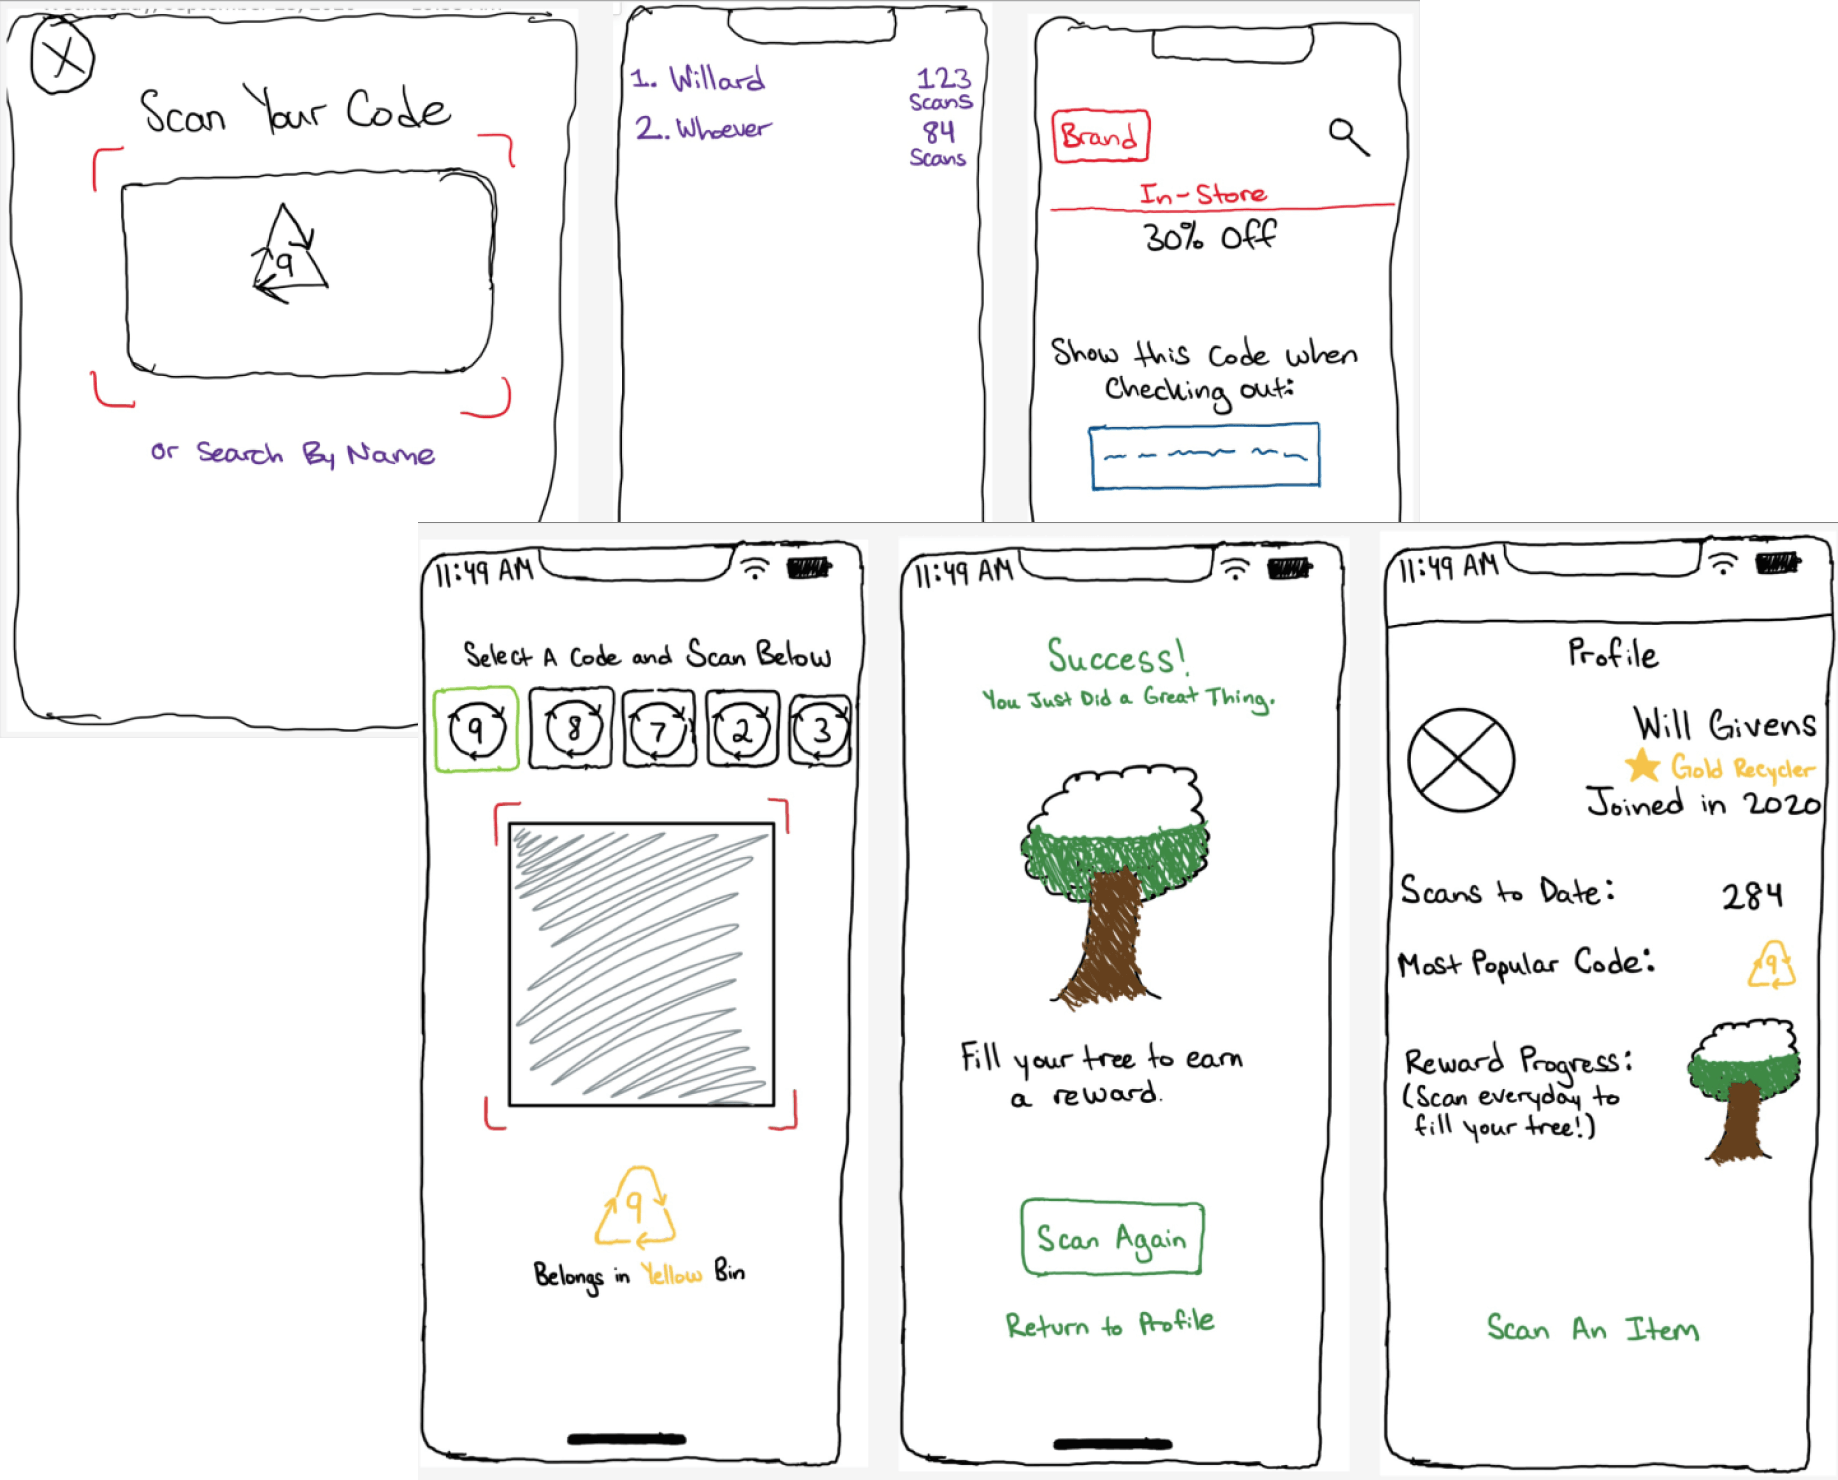 X
Scan Your Code
9
or Search By Name
1. Willard 123
Scans
2. Whoever 84
Scans
Brand
In-Store
30% Off
Show this Code when
Checking out:
11:49 AM
Select A Code and Scan Below
9 8 7 2 3
9
Belongs in Yellow Bin
11:49 AM
Success!
You Just Did a Great Thing.
Fill your tree to earn
a reward.
Scan Again
Return to Profile
11:49 AM
Profile
Will Givens
Gold Recycler
Joined in 2020
Scans to Date: 284
Most Popular Code: 9
Reward Progress:
(Scan everyday to
fill your tree!)
Scan An Item